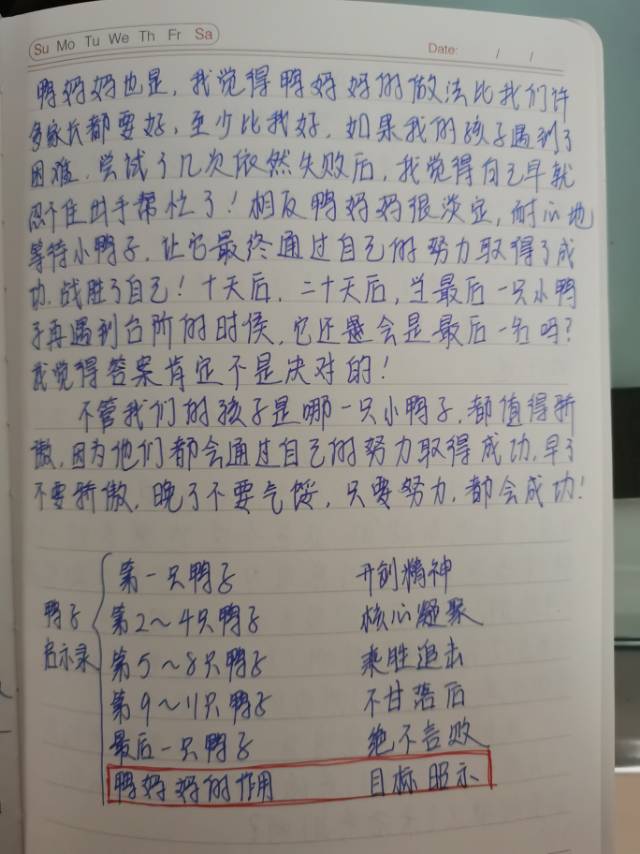 Su Mo Tu We Th Fr Sa
Date: / /
鸭妈妈也是，我觉得鸭妈妈的做法比我们许
多家长都要好，至少比我好，如果我的孩子遇到了
困难，尝试了几次依然失败后，我觉得自己早就
忍不住出手帮忙了！相反鸭妈妈很淡定，耐心地
等待小鸭子，让它最终通过自己的努力取得了成
功，战胜了自己！十天后，二十天后，当最后一只小鸭
子再遇到台阶的时候，它还会是最后一名吗？
我觉得答案肯定不是决对的！
不管我们的孩子是哪一只小鸭子，都值得骄
傲，因为他们都会通过自己的努力取得成功，早了
不要骄傲，晚了不要气馁，只要努力，都会成功！
鸭子
启示录
第一只鸭子 开创精神
第2～4只鸭子 核心凝聚
第5～8只鸭子 乘胜追击
第9～11只鸭子 不甘落后
最后一只鸭子 绝不言败
鸭妈妈的作用 目标昭示